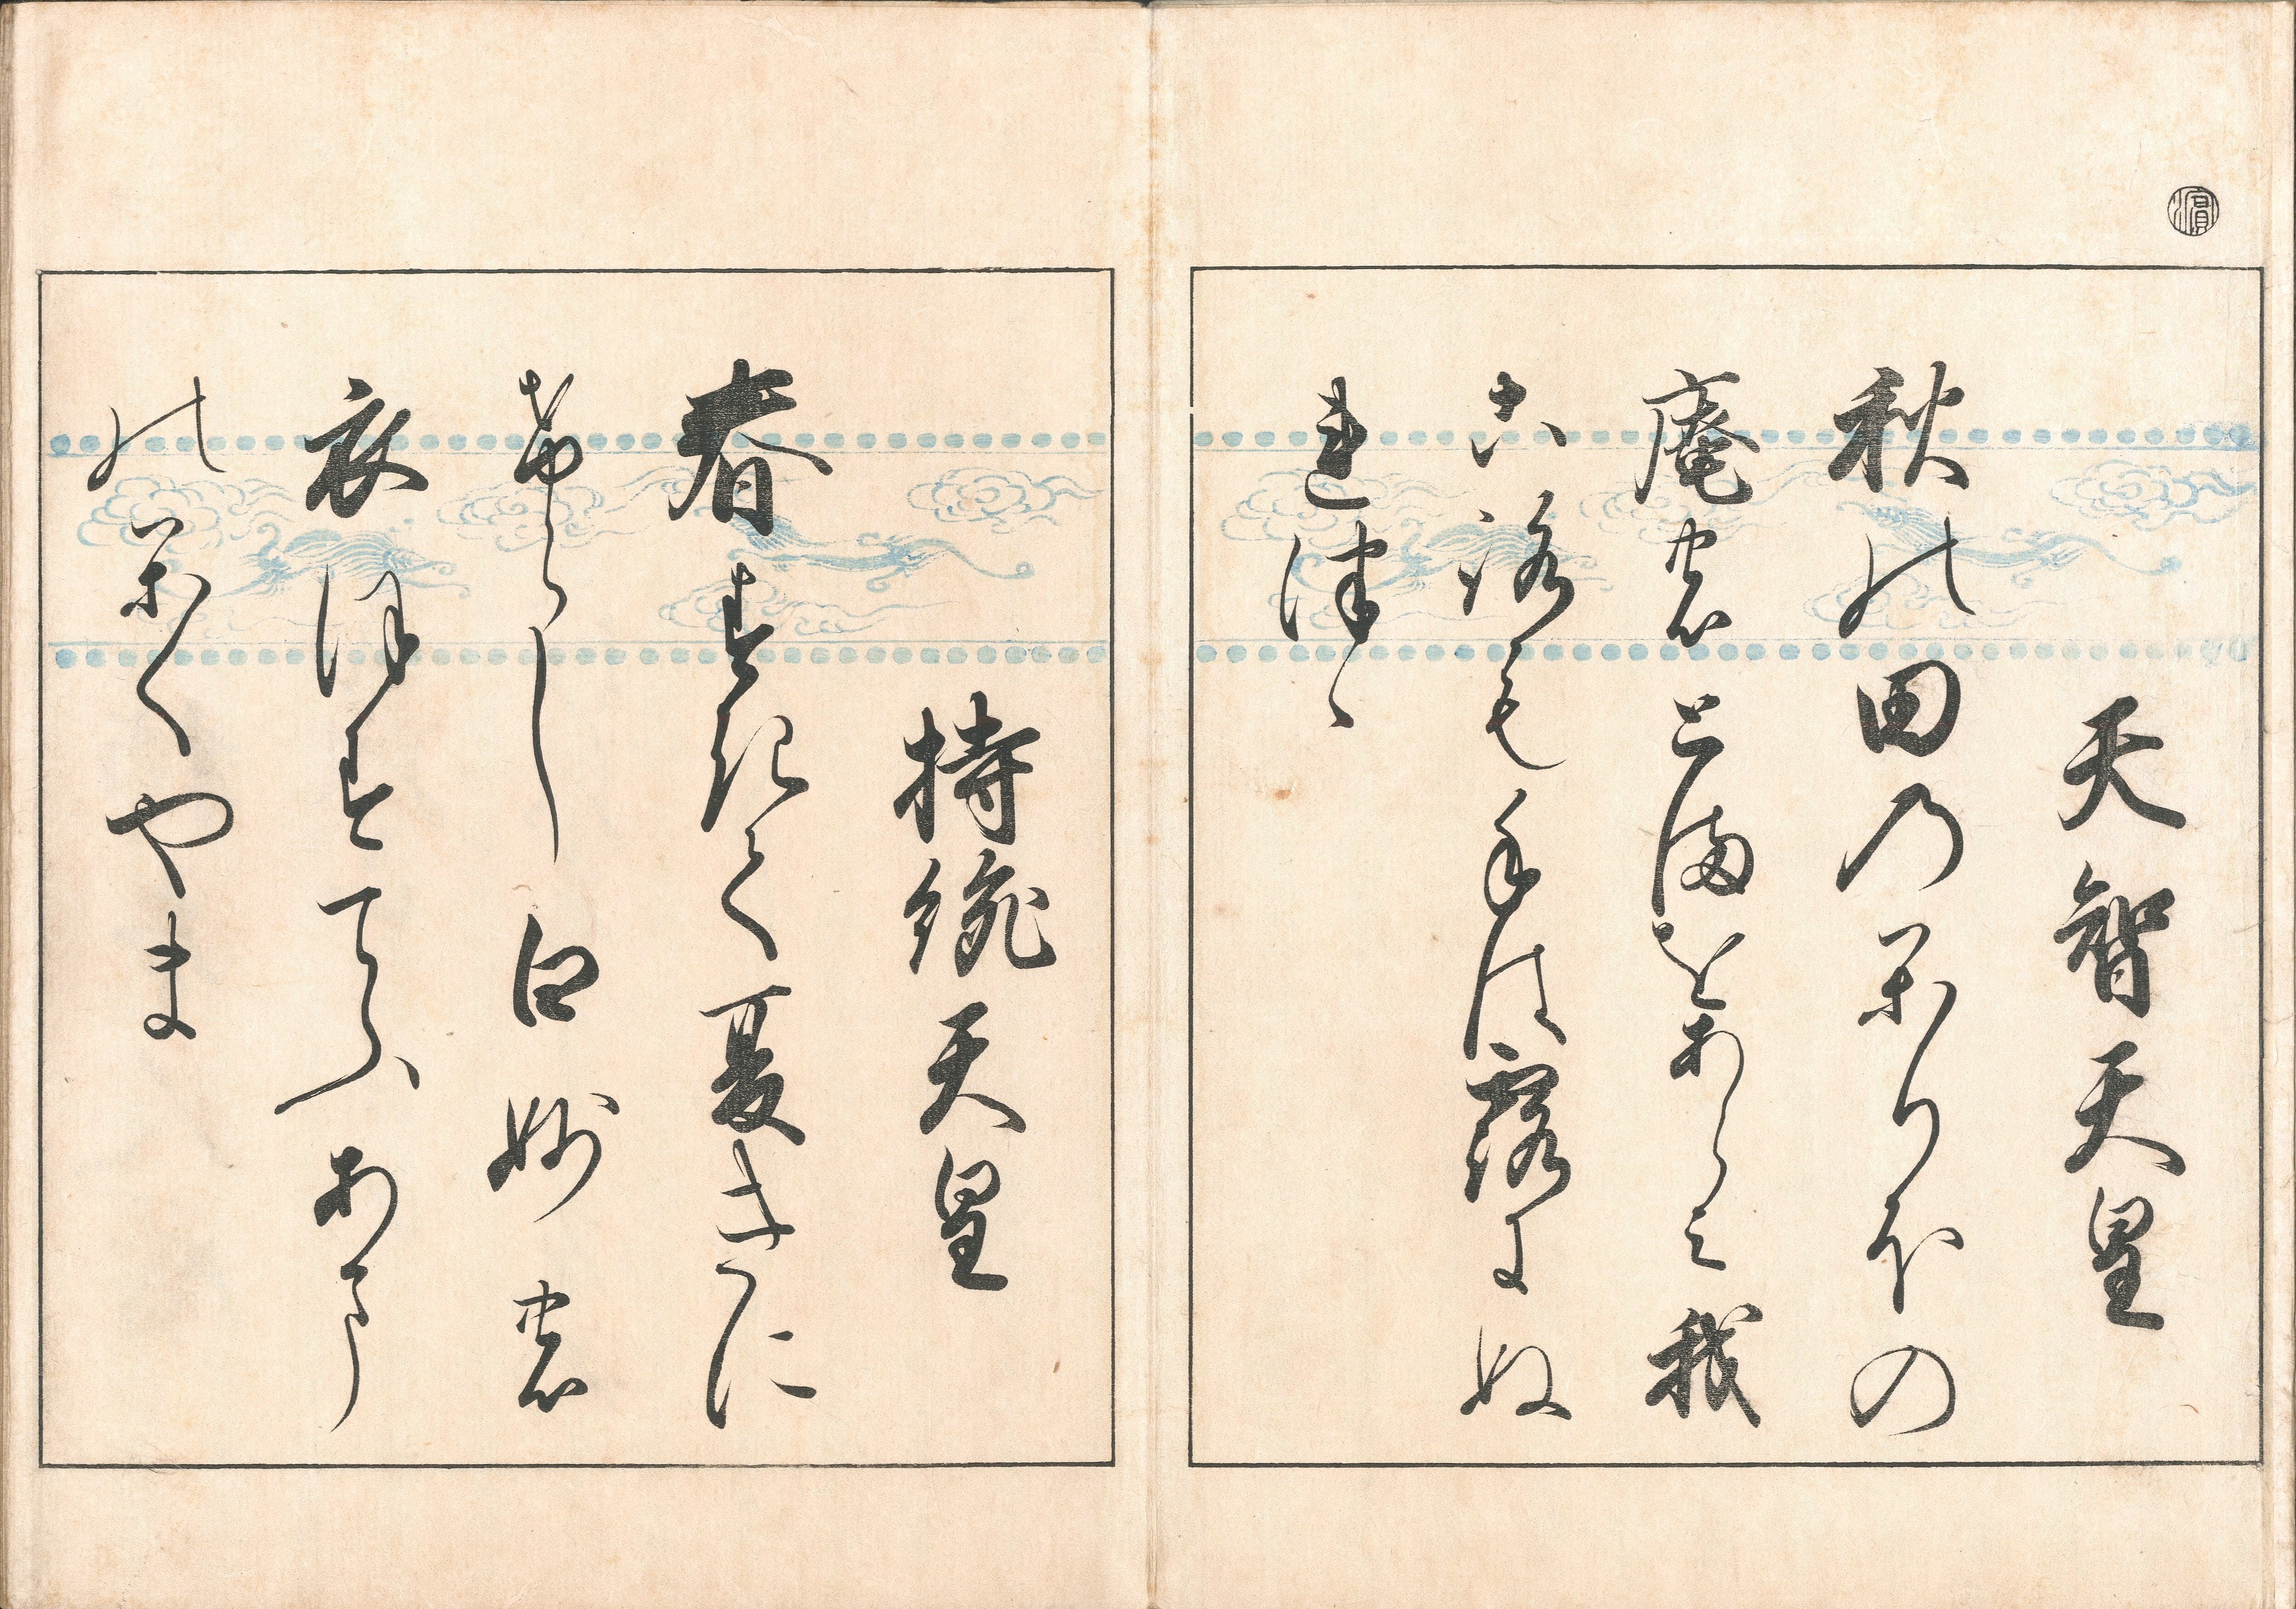 天智天皇
秋の田のかりほの
庵のとまをあらみ我
ころも手は露にぬ
れつゝ
持統天皇
春すきて夏きに
けらし白妙の
衣ほすてふあま
のかくやま